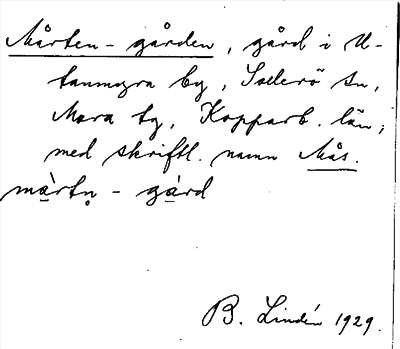 Mårten-gården, gård i U-
tanmyra by, Sollerö sn,
Mora tg, Kopparb. län,
med skriftl. namn Mås.
mà̠rtn̥ - gà̠rd
B. Lindén 1929.